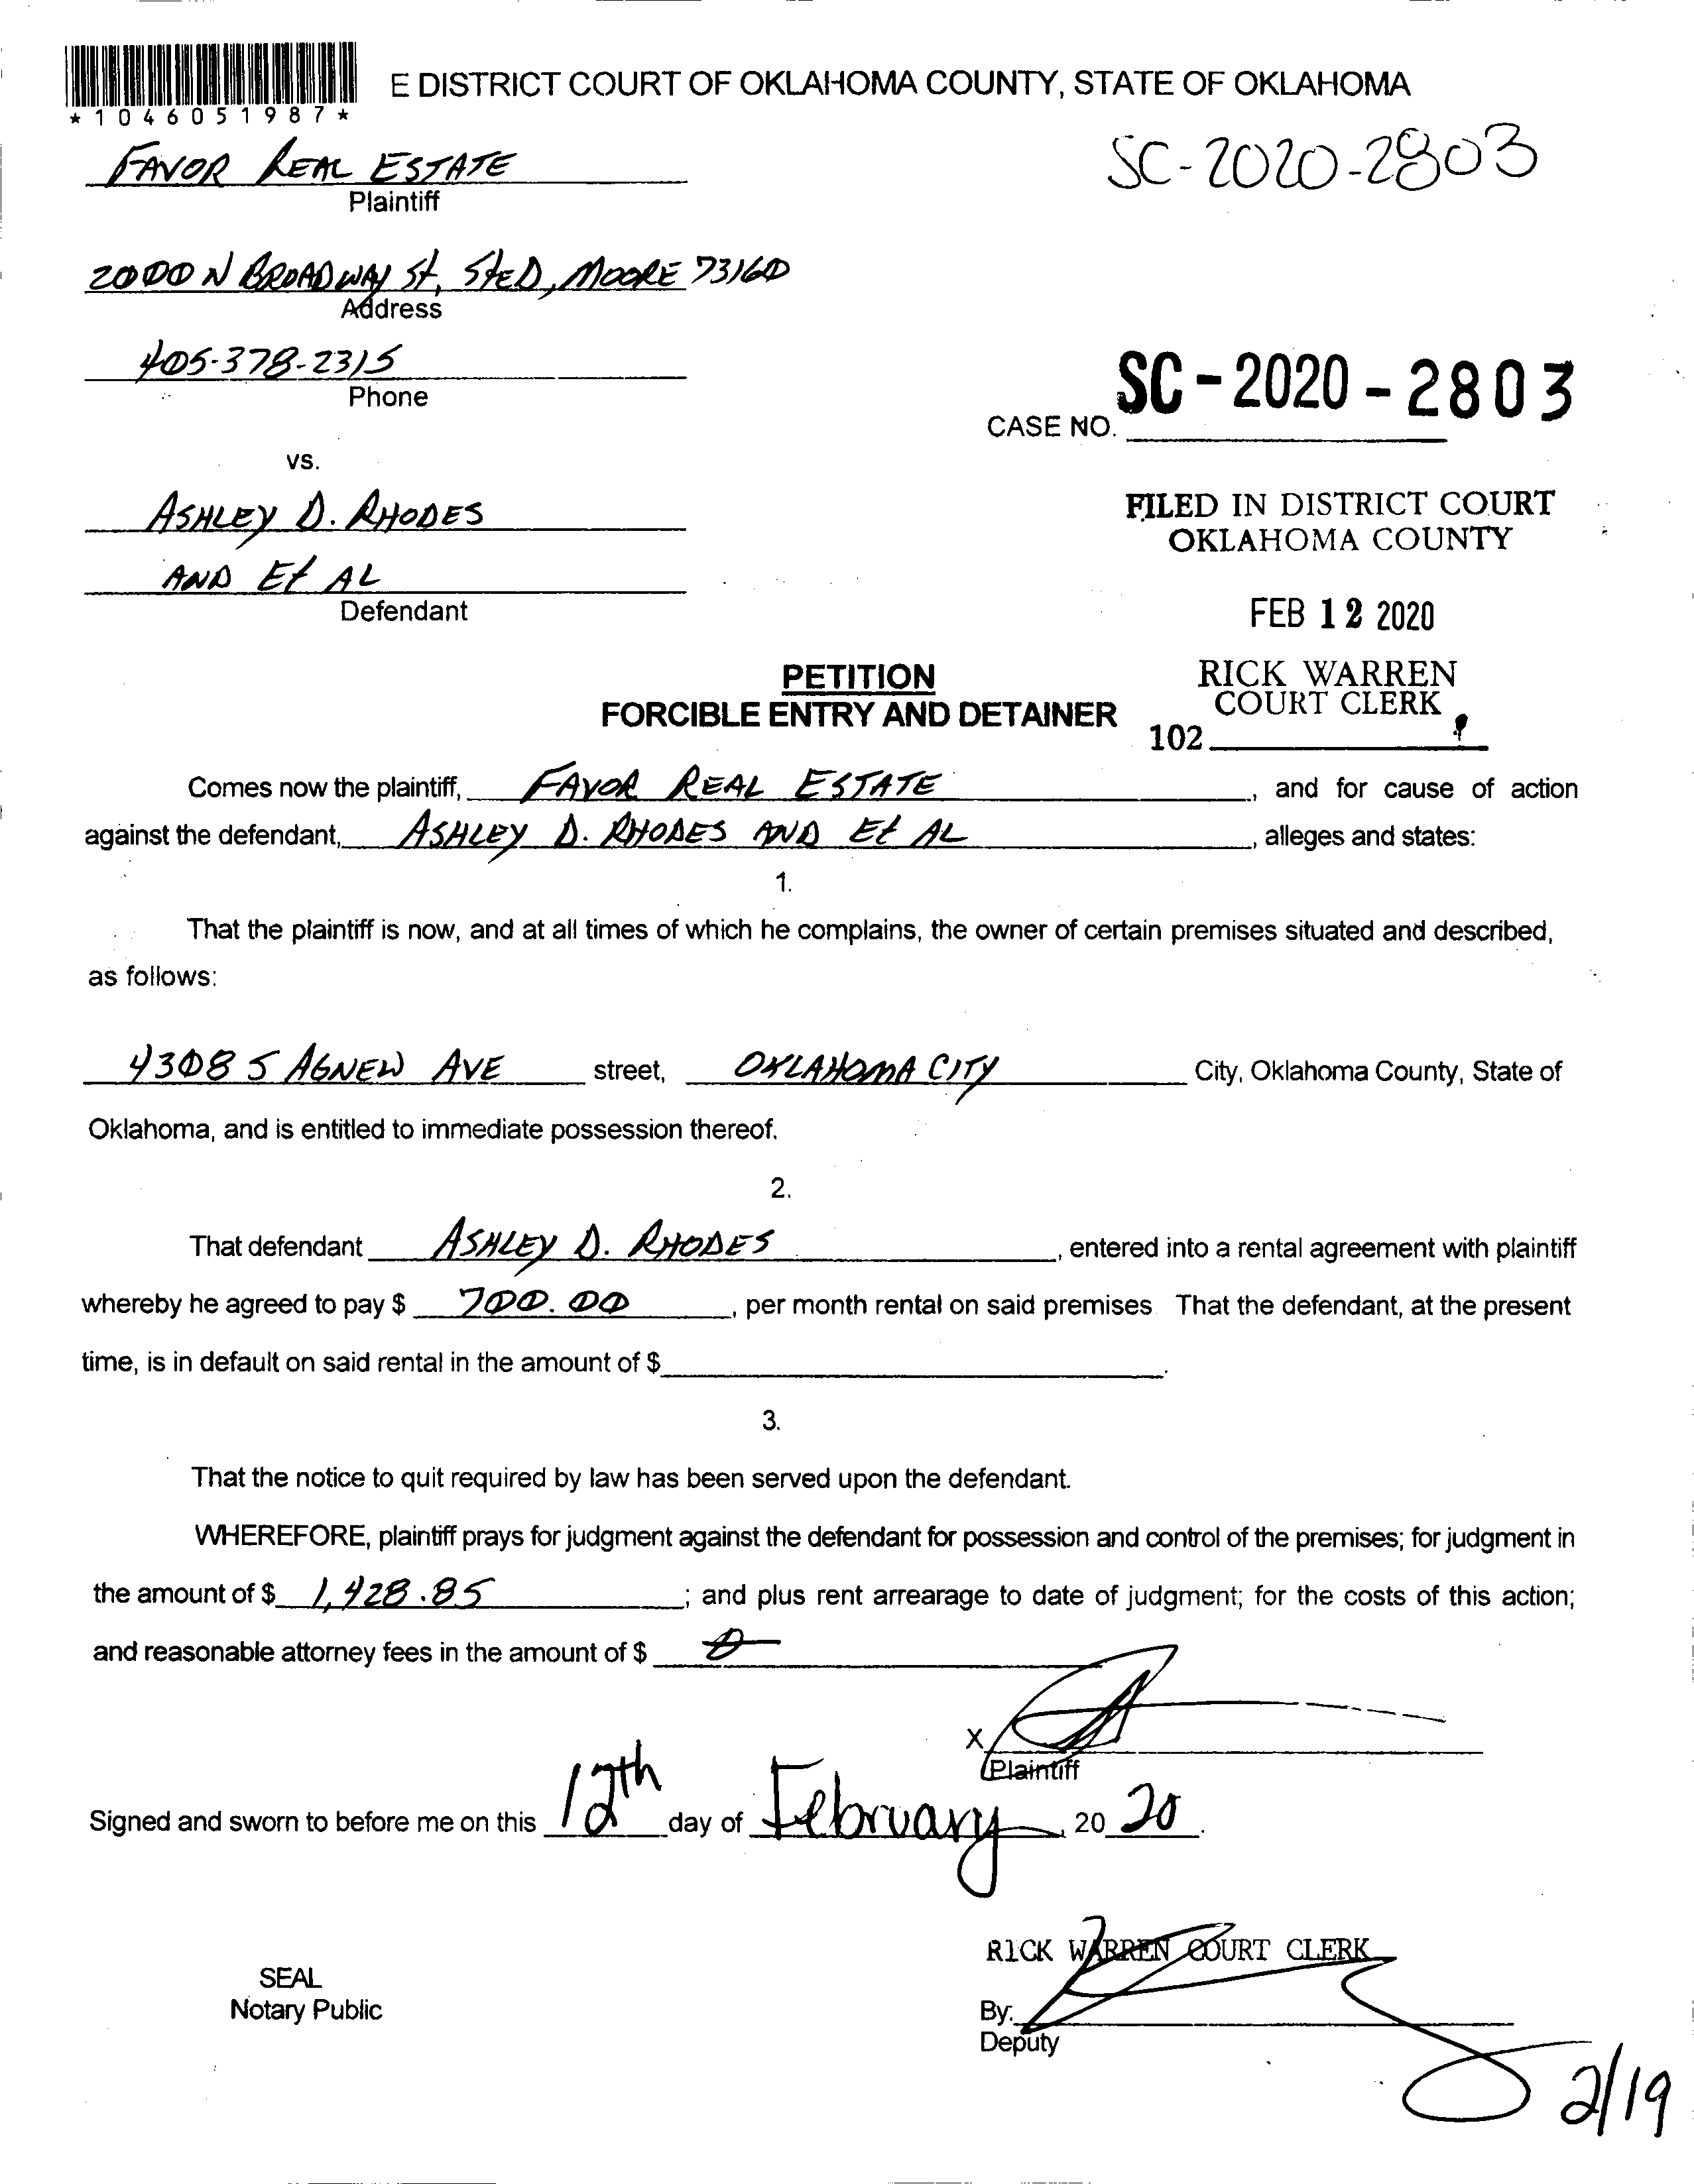 E DISTRICT COURT OF OKLAHOMA COUNTY, STATE OF OKLAHOMA
*1046051987*
FAVOR REAL ESTATE
SC-2020-2803
Plaintiff
2000 N BROADWAY St, Ste D, MOORE 73160
Address
405-378-2315
Phone
CASE NO. SC-2020-2803
vs.
ASHLEY D. RHODES
FILED IN DISTRICT COURT
OKLAHOMA COUNTY
AND Et AL
Defendant
FEB 12 2020
PETITION
RICK WARREN
FORCIBLE ENTRY AND DETAINER
COURT CLERK
102
Comes now the plaintiff, FAVOR REAL ESTATE, and for cause of action
against the defendant, ASHLEY D. RHODES AND Et AL, alleges and states:
1.
That the plaintiff is now, and at all times of which he complains, the owner of certain premises situated and described,
as follows:
4308 S AGNEW AVE street, OKLAHOMA CITY City, Oklahoma County, State of
Oklahoma, and is entitled to immediate possession thereof.
2.
That defendant ASHLEY D. RHODES, entered into a rental agreement with plaintiff
whereby he agreed to pay $ 700.00, per month rental on said premises. That the defendant, at the present
time, is in default on said rental in the amount of $ .
3.
That the notice to quit required by law has been served upon the defendant.
WHEREFORE, plaintiff prays for judgment against the defendant for possession and control of the premises; for judgment in
the amount of $ 1,428.85; and plus rent arrearage to date of judgment; for the costs of this action;
and reasonable attorney fees in the amount of $ 0
X
Plaintiff
Signed and sworn to before me on this 12th day of February, 20 20.
RICK WARREN COURT CLERK
SEAL
Notary Public
By:
Deputy
2/19